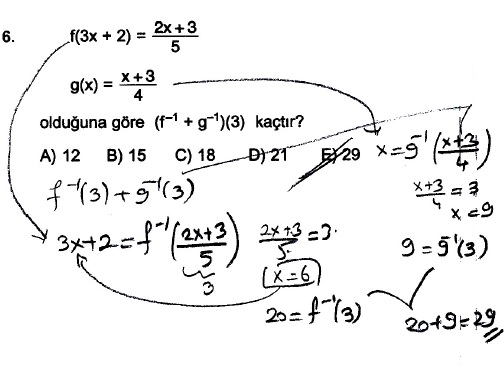 6. f(3x + 2) = (2x + 3)/5
g(x) = (x + 3)/4
olduğuna göre (f⁻¹ + g⁻¹)(3) kaçtır?
A) 12 B) 15 C) 18 D) 21 E) 29
f⁻¹(3) + g⁻¹(3)
3x+2 = f⁻¹((2x+3)/5)
3
(2x+3)/5 = 3
x=6
20 = f⁻¹(3)
x = g⁻¹((x+3)/4)
(x+3)/4 = 3
x=9
9 = g⁻¹(3)
20+9=29